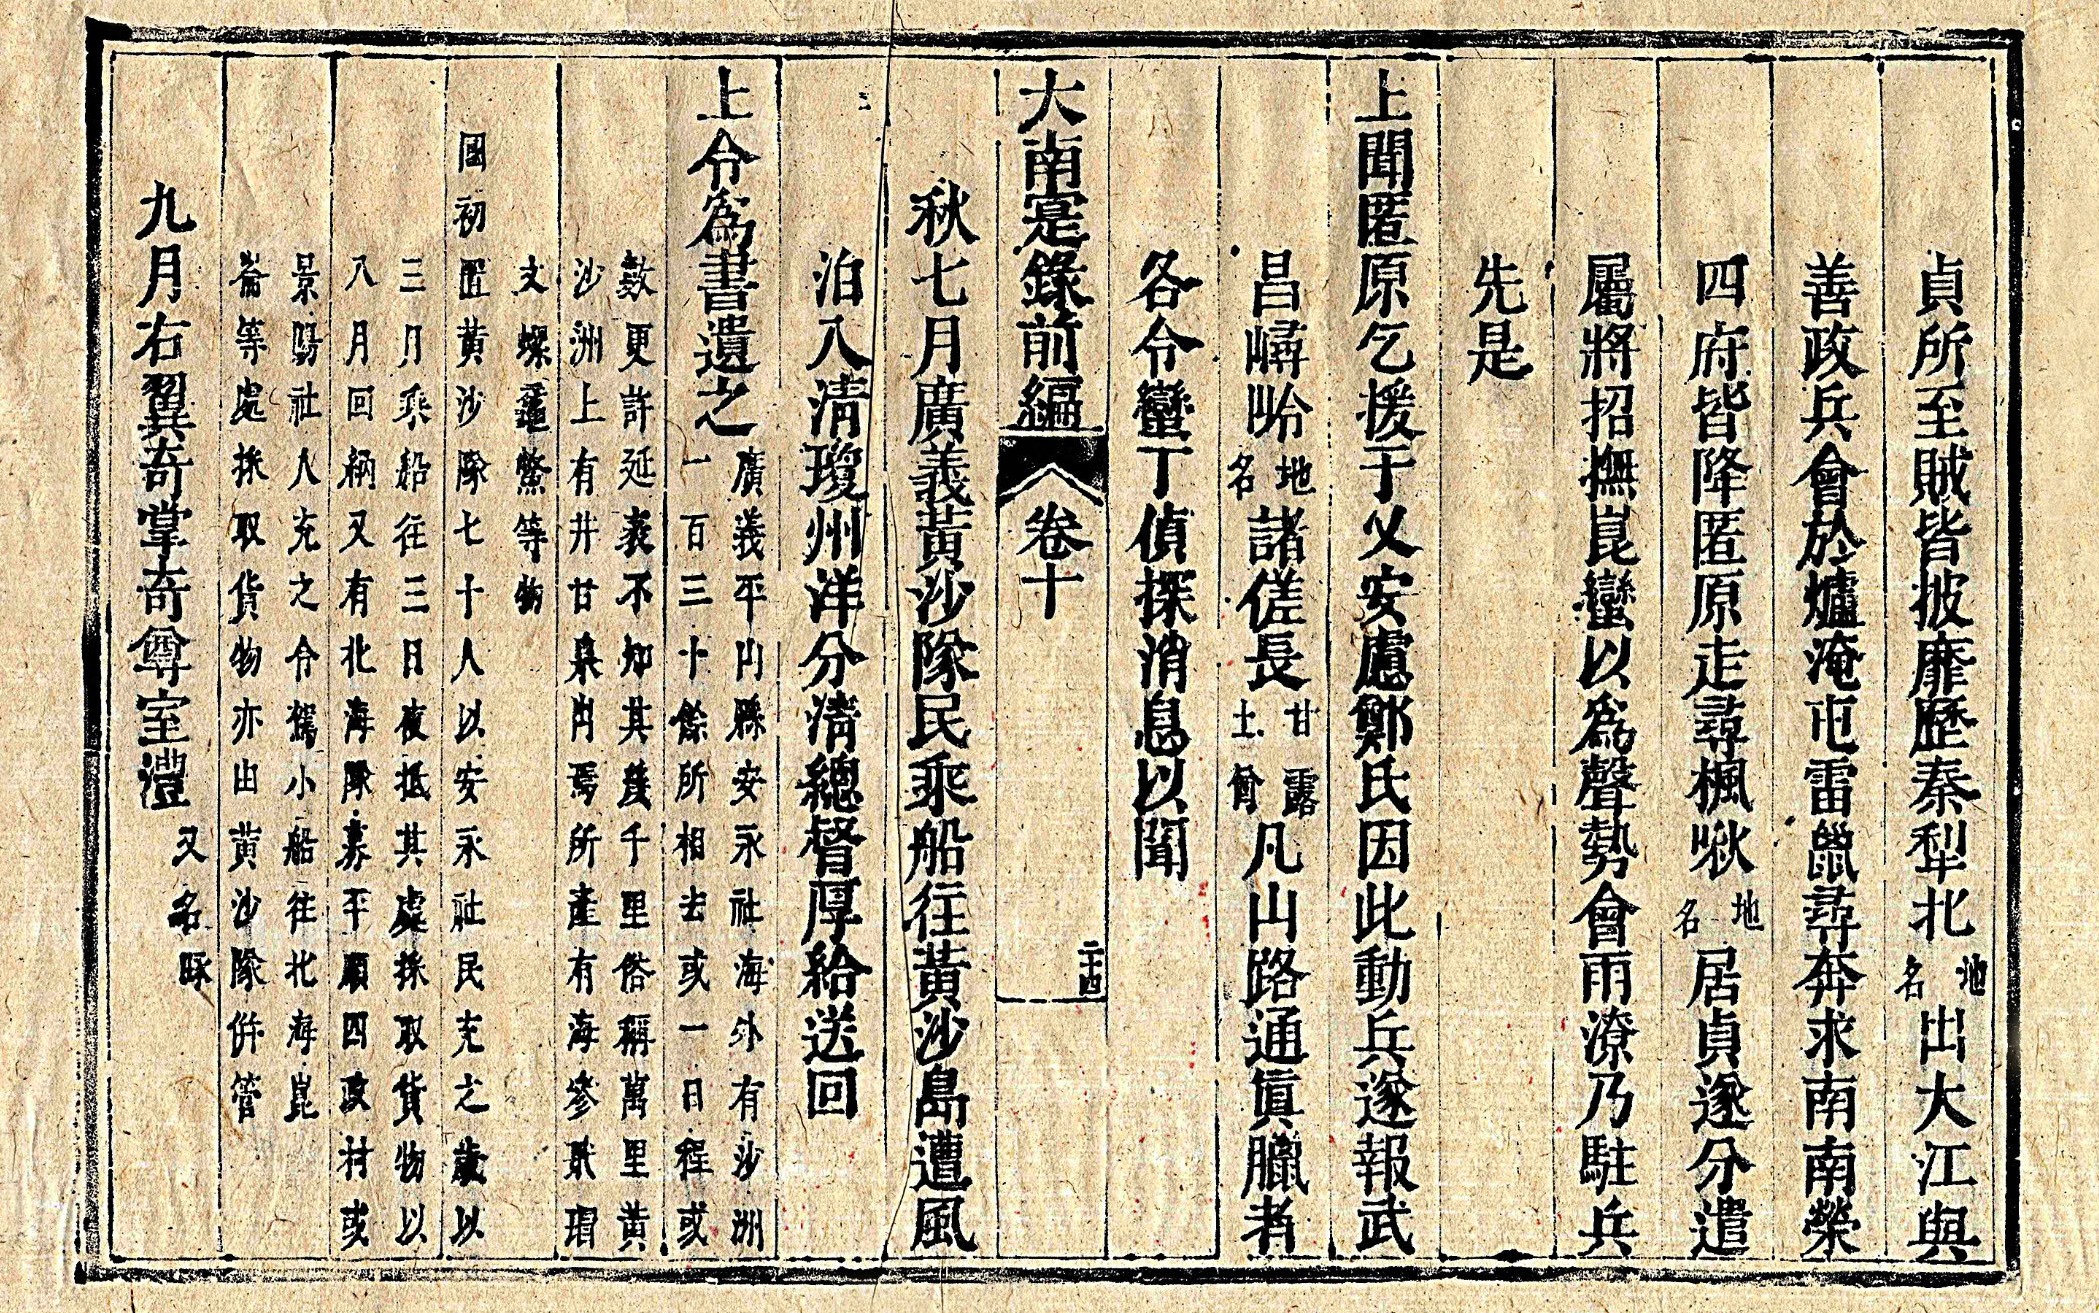 貞所至賊皆披靡歷秦犁北地名出大江與
善政兵會於爐淹屯雷蠟尋奔求南南榮
四府皆降匿原走尋楓啾地名居貞遂分遣
屬將招撫崑蠻以為聲勢會雨潦乃駐兵
先是
上聞匿原乞援于乂安慮鄭氏因此動兵遂報武
昌㠇呁地名諸傞長甘露土酋凡山路通眞臘者
各令蠻丁偵探消息以聞
大南寔錄前編 卷十 二十四
秋七月廣義黃沙隊民乘船往黃沙島遭風
泊入清瓊州洋分清總督厚給送回
上令為書遺之廣義平山縣安永社海外有沙洲
一百三十餘所相去或一日程或
數更許延袤不知其幾千里俗稱萬里黃
沙洲上有井甘泉出焉所產有海參玳瑁
文螺黿鱉等物
國初置黃沙隊七十人以安永社民充之歲以
三月乘船往三日夜抵其處採取貨物以
八月回納又有北海隊募平順四政村或
景陽社人充之令駕小船往北海崑
崙等處採取貨物亦由黃沙隊併管
九月右翼奇掌奇尊室澧又名㖼